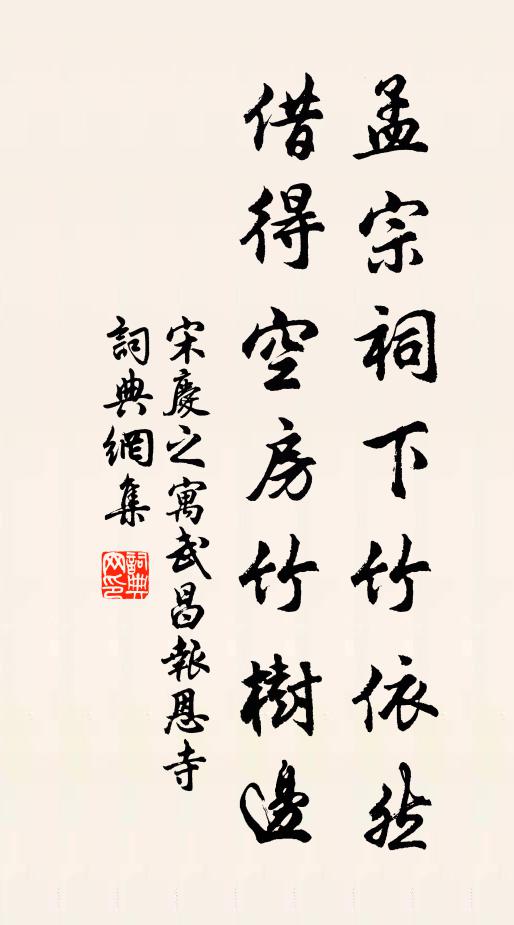 孟宗祠下竹依然
借得空房竹樹邊
宋慶之寓武昌報恩寺
詞典網集
詞典網印